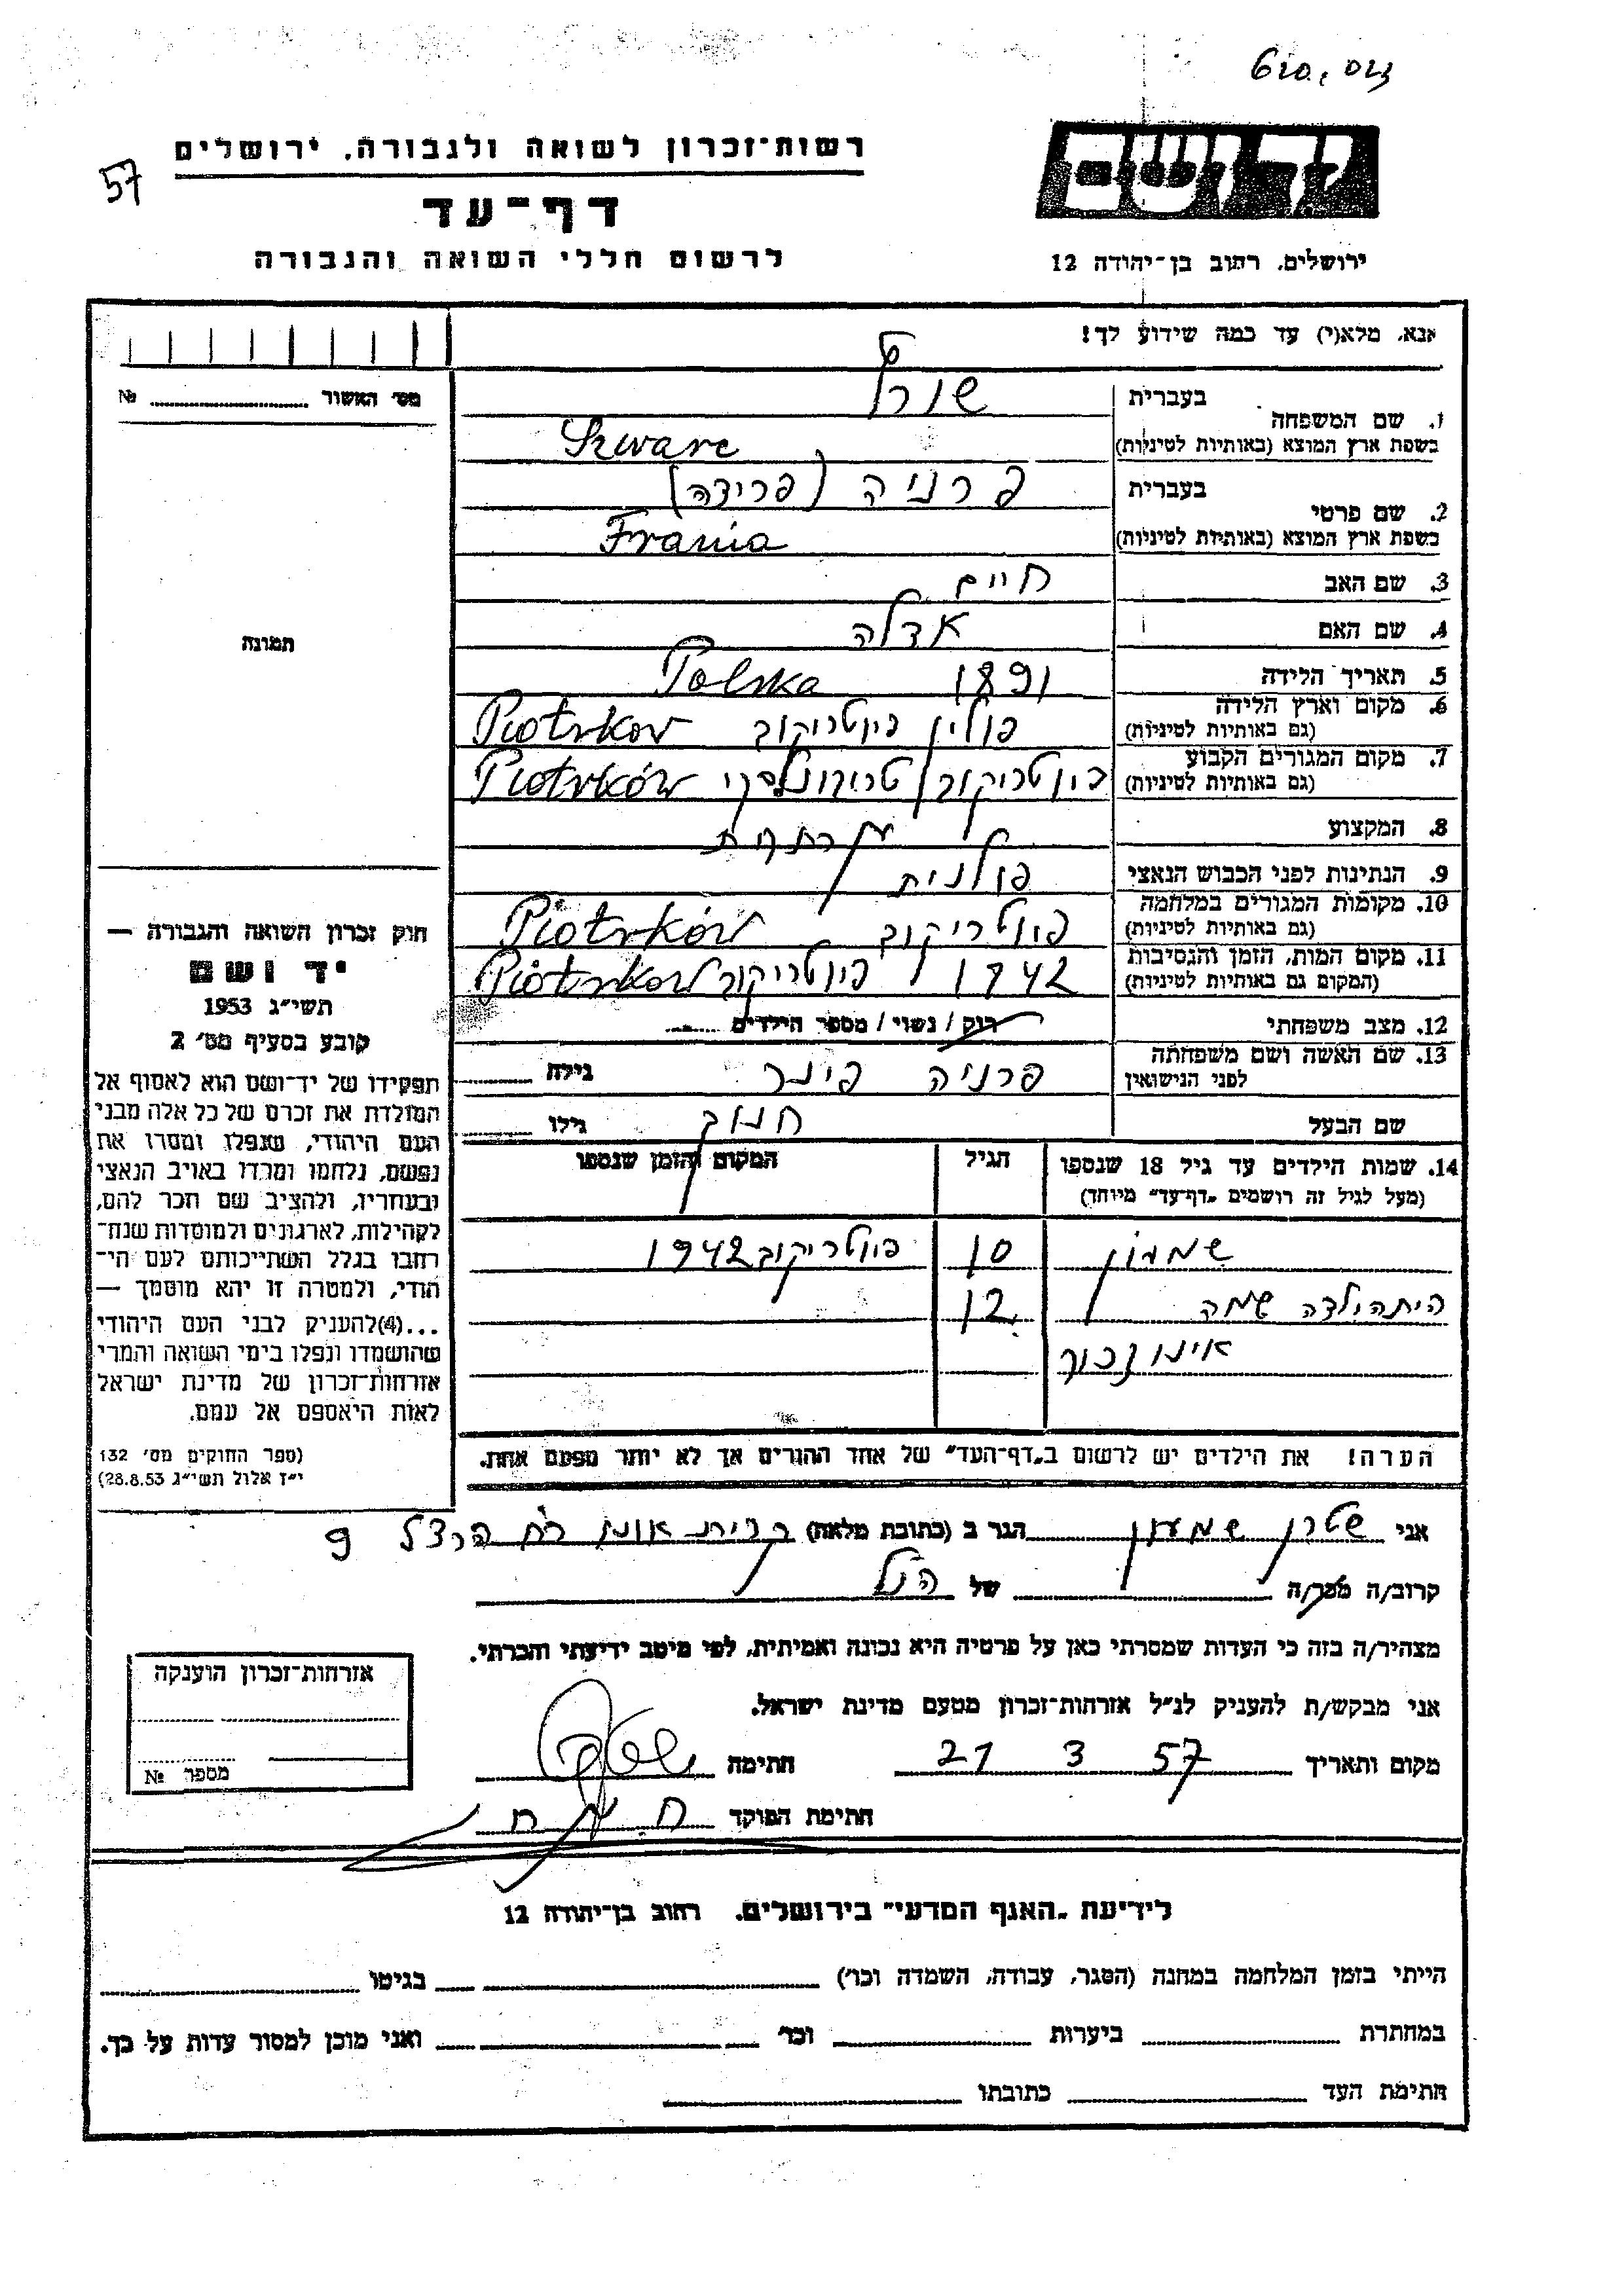 57
רשות־זכרון לשואה ולגבורה, ירושלים
דף־עד
לרשום חללי השואה והגבורה
ידושם
ירושלים, רחוב בן־יהודה 12
אנא, מלא(י) עד כמה שידוע לך!
מס׳ האשור № 
1. שם המשפחה
בעברית
בשפת ארץ המוצא (באותיות לטיניות)
Szwarc
2. שם פרטי
בעברית פרניה (פרידה)
בשפת ארץ המוצא (באותיות לטיניות) Frania
3. שם האב חיים
4. שם האם אדלה
5. תאריך הלידה 1891 Polska
6. מקום וארץ הלידה (גם באותיות לטיניות) פולין פיוטריקוב Piotrkov
7. מקום המגורים הקבוע (גם באותיות לטיניות) פיוטריקוב טריבונלסקי Piotrków
8. המקצוע עקרת
9. הנתינות לפני הכבוש הנאצי פולנית
10. מקומות המגורים במלחמה (גם באותיות לטיניות) פיוטריקוב Piotrków
11. מקום המות, הזמן והנסיבות (המקום גם באותיות לטיניות) 1942 פיוטריקוב Piotrkow
12. מצב משפחתי רוק / נשוי / מספר הילדים
13. שם האשה ושם משפחתה לפני הנישואין פרניה פינר גילה
שם הבעל חנוך גילו
14. שמות הילדים עד גיל 18 שנספו
(מעל לגיל זה רושמים „דף־עד״ מיוחד)
הגיל
המקום והזמן שנספו
שמעון 10 פיוטריקוב 1942
הית הילדה שמה 12
אינו זכור
הערה! את הילדים יש לרשום ב„דף־העד״ של אחד ההורים אך לא יותר מפעם אחת.
תמונה
חוק זכרון השואה והגבורה —
יד ושם
תשי״ג 1953
קובע בסעיף מס׳ 2
תפקידו של יד־ושם הוא לאסוף אל
המולדת את זכרם של כל אלה מבני
העם היהודי, שנפלו ומסרו את
נפשם, נלחמו ומרדו באויב הנאצי
ובעוזריו, ולהציב שם וזכר להם,
לקהילות, לארגונים ולמוסדות שנח־
רבו בגלל השתייכותם לעם הי־
הודי, ולמטרה זו יהא מוסמך —
...(4)להעניק לבני העם היהודי
שהושמדו ונפלו בימי השואה והמרי
אזרחות־זכרון של מדינת ישראל
לאות היאספם אל עמם.
(ספר החוקים מס׳ 132
י״ז אלול תשי״ג 28.8.53)
אני שטרן שמעון הגר ב (כתובת מלאה) קרית אונו רח הרצל 9
קרוב/ה מכר/ה של הנ״ל
מצהיר/ה בזה כי העדות שמסרתי כאן על פרטיה היא נכונה ואמיתית, לפי מיטב ידיעתי והכרתי.
אני מבקש/ת להעניק לנ״ל אזרחות־זכרון מטעם מדינת ישראל.
מקום ותאריך 21 3 57 חתימה
חתימת הפוקד
אזרחות־זכרון הוענקה
מספר №
לידיעת „האגף המדעי״ בירושלים, רחוב בן־יהודה 12
הייתי בזמן המלחמה במחנה (הסגר, עבודה, השמדה וכו׳) בגיטו
במחתרת ביערות וכו׳ ואני מוכן למסור עדות על כך.
חתימת העד כתובתו